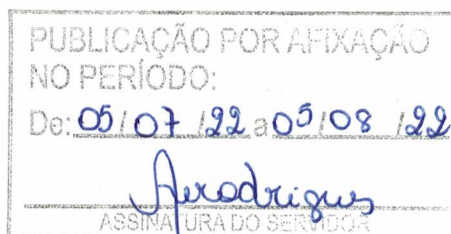 PUBLICAÇÃO POR AFIXAÇÃO
NO PERÍODO:
De: 05/07/22 a 05/08/22
ASSINATURA DO SERVIDOR